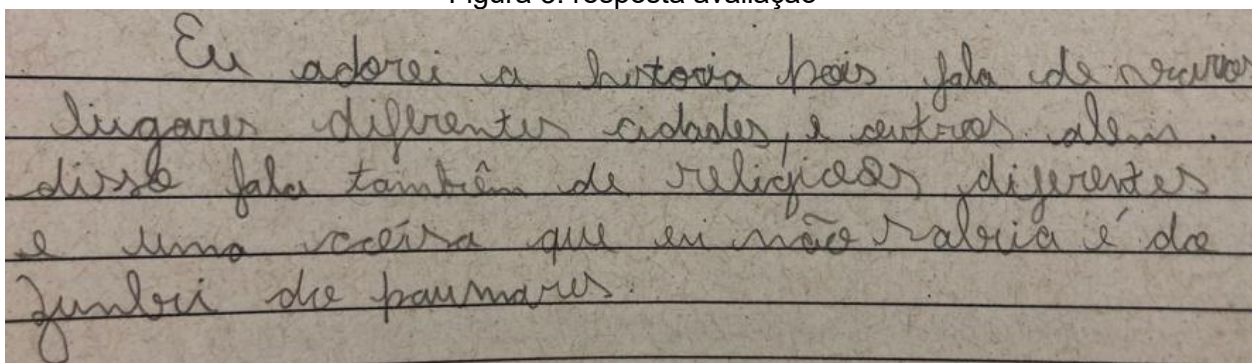 Figura 6: resposta avaliação
Eu adorei a historia pois fala de varios
lugares diferentes cidades, e outros alem.
disso fala também de religiões diferentes
e uma coisa que eu não sabia é do
Zumbi do paumares.